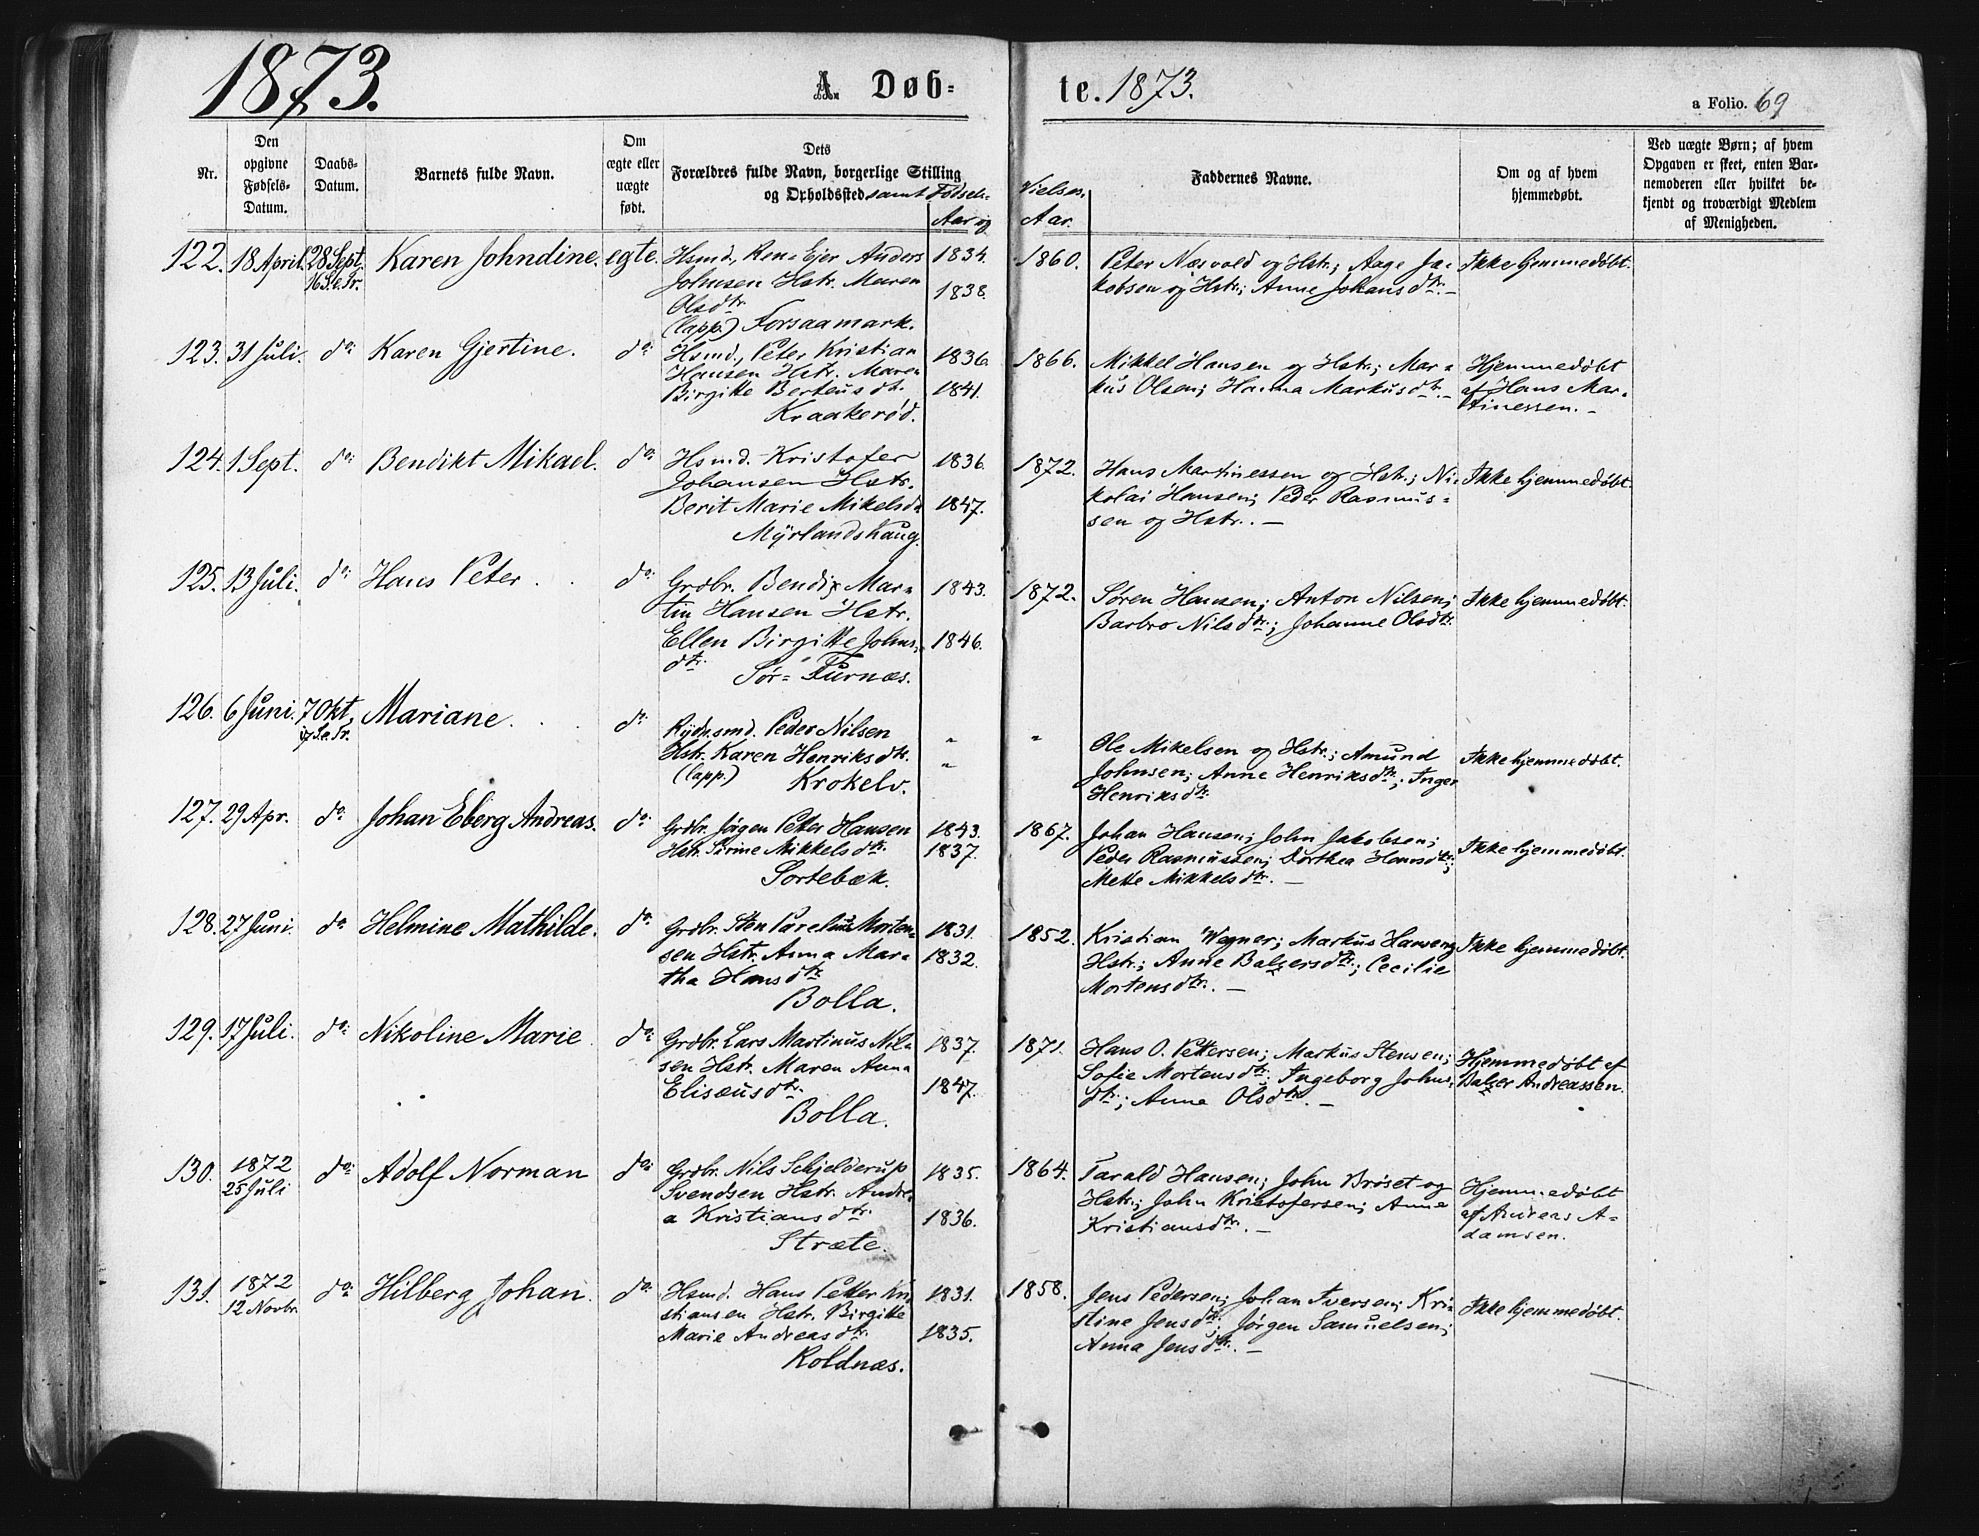 1873.
A. Døb-
te. 1873.
a Folio. 69
Nr.
Den
opgivne
Fødsels-
Datum.
Daabs-
Datum.
Barnets fulde Navn.
Om
ægte eller
uægte
født.
Dets
Forældres fulde Navn, borgerlige Stilling
og Opholdssted samt Fødsels-
Aar og
Vielses-
Aar.
Faddernes Navne.
Om og af hvem
hjemmedøbt.
Ved uægte Børn; af hvem
Opgaven er skeet, enten Bar-
nemoderen eller hvilket be-
kjendt og troværdigt Medlem
af Menigheden.
122. 18 April. 28 Sept. Karen Johndine. egte. Hsmd. Ren-Ejer Anders 1834. 1860. Peter Næsvold og Hstr.; Aage Ja- Ikke hjemmedøbt.
16 S. e. Tr. Johnsen Hstr. Maren 1838. kobsen og Hstr.; Anne Johansdtr. -
Olsdtr.
(lapp.) Forsaamark.
123. 31 Juli. do. Karen Gjertine. do. Hsmd. Peter Kristian 1836. 1866. Mikkel Hansen og Hstr.; Mar- Hjemmedøbt
Hansen Hstr. Maren kus Olsen; Hanna Markusdtr. - af Hans Mar-
Birgitte Berteusdtr. 1841. tinessen. -
Kraakerød.
124. 1 Sept. do. Bendikt Mikael. do. Hsmd. Kristofer 1836. 1872. Hans Martinessen og Hstr.; Ni- Ikke hjemmedøbt.
Johansen Hstr. kolai Hansen; Peder Rasmus-
Berit Marie Mikelsdtr. 1847. sen og Hstr. -
Myrlandshaug.
125. 13 Juli. do. Hans Peter. do. Grdbr. Bendix Mar- 1843. 1872. Søren Hansen; Anton Nilsen; Ikke hjemmedøbt.
tin Hansen Hstr. Barbro Nilsdtr.; Johanne Olsdtr.
Ellen Birgitte Johns- 1846.
dtr. Sør-Furnæs.
126. 6 Juni. 7 Okt. Mariane. do. Rydnsmd. Peder Nilsen " " Ole Mikelsen og Hstr.; Amund Ikke hjemmedøbt.
17 S. e. Tr. Hstr. Karen Henriksdtr. " Johnsen; Anne Henriksdtr.; Inger
(lapp.) Krokelv. Henriksdtr.
127. 29 Apr. do. Johan Eberg Andreas. do. Grdbr. Jørgen Peter Hansen 1843. 1867. Johan Hansen; John Jakobsen; Ikke hjemmedøbt.
Hstr. Sirine Mikkelsdtr. 1837. Peder Rasmussen; Dorthea Hansdtr.;
Sortebæk. Mette Mikkelsdtr. -
128. 27 Juni. do. Helmine Mathilde. do. Grdbr. Sten Parelius Morten- 1831. 1852. Kristian Wegner; Markus Hansen og Ikke hjemmedøbt.
sen Hstr. Anna Mar- 1832. Hstr.; Anne Balzersdtr.; Cecilie
tha Hansdtr. Mortensdtr. -
Bolla.
129. 17 Juli. do. Nikoline Marie. do. Grdbr. Lars Martinus Nil- 1837. 1871. Hans O. Pettersen; Markus Stensen; Hjemmedøbt af
sen Hstr. Maren Anna Sofie Mortensdtr. Ingeborg Johns- Balzer Andreassen.
Elisæusdtr. 1847. dtr.; Anna Olsdtr. -
Bolla.
130. 1872 do. Adolf Norman do. Grdbr. Nils Schjelderup 1835. 1864. Tarald Hansen; John Brøset og Hjemmedøbt
25 Juli Svendsen Hstr. Andre- Hstr.; John Kristofersen; Anne af Andreas A-
a Kristiansdtr. 1836. Kristiansdtr. - damsen.
Stræte.
131. 1872 do. Hilberg Johan. do. Hsmd. Hans Petter Kri- 1831. 1858. Jens Pedersen; Johan Iversen; Kri- Ikke hjemmedøbt.
12 Novbr. stiansen Hstr. Birgitte stine Jensdtr.; Jørgen Samuelsen;
Marie Andreasdtr. 1835. Anna Jensdtr. -
Koldnæs.